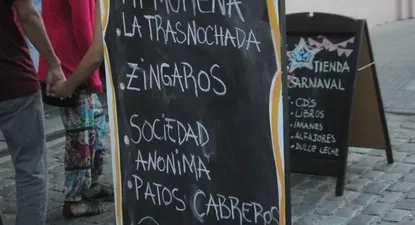 MI MORENA
·LA TRASNOCHADA
·ZINGAROS
·SOCIEDAD
ANÓNIMA
·PATOS CABREROS
TIENDA
CARNAVAL
·CD'S
·LIBROS
·IMANES
·ALFAJORES
·DULCE LECHE